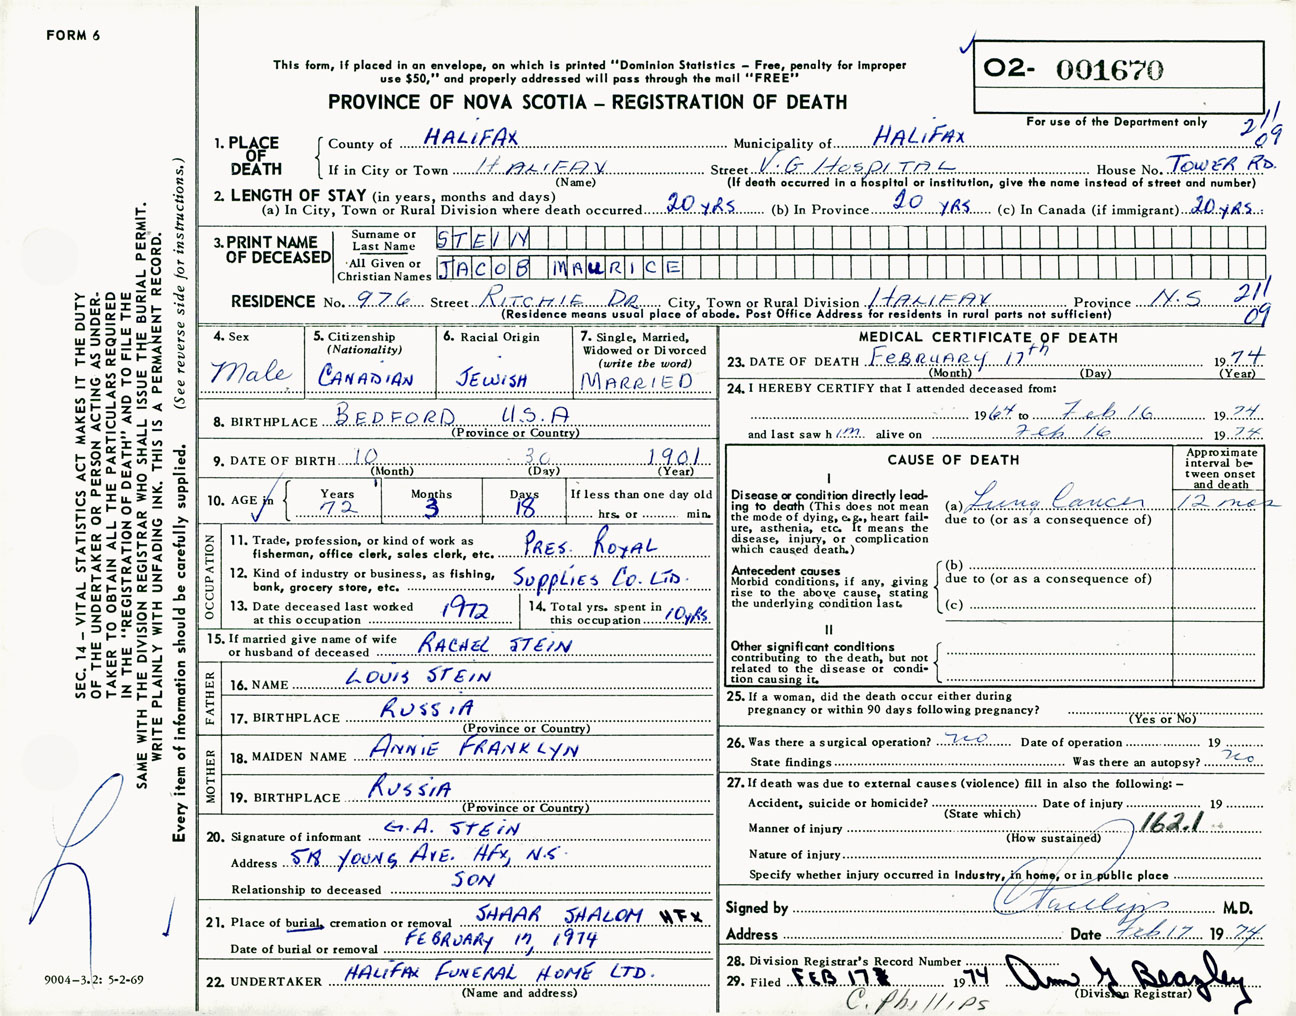 FORM 6
This form, if placed in an envelope, on which is printed "Dominion Statistics – Free, penalty for improper
use $50," and properly addressed will pass through the mail "FREE"
PROVINCE OF NOVA SCOTIA – REGISTRATION OF DEATH
02- 001670
For use of the Department only
211
09
1. PLACE OF DEATH
County of HALIFAX Municipality of HALIFAX
If in City or Town HALIFAX Street V.G HOSPITAL House No. TOWER RD.
(Name) (If death occurred in a hospital or institution, give the name instead of street and number)
2. LENGTH OF STAY (in years, months and days)
(a) In City, Town or Rural Division where death occurred 20 YRS (b) In Province 20 YRS (c) In Canada (if immigrant) 20 YRS
3. PRINT NAME OF DECEASED
Surname or Last Name STEIN
All Given or Christian Names JACOB MAURICE
RESIDENCE No. 976 Street RITCHIE DR City, Town or Rural Division HALIFAX Province N.S
(Residence means usual place of abode. Post Office Address for residents in rural parts not sufficient)
211
09
4. Sex
Male
5. Citizenship
(Nationality)
CANADIAN
6. Racial Origin
JEWISH
7. Single, Married,
Widowed or Divorced
(write the word)
MARRIED
8. BIRTHPLACE BEDFORD U.S.A
(Province or Country)
9. DATE OF BIRTH 10 30 1901
(Month) (Day) (Year)
10. AGE in
Years Months Days If less than one day old
72 3 18 hrs. or min.
OCCUPATION
11. Trade, profession, or kind of work as
fisherman, office clerk, sales clerk, etc. PRES. ROYAL
12. Kind of industry or business, as fishing,
bank, grocery store, etc. SUPPLIES CO. LTD.
13. Date deceased last worked
at this occupation 1972
14. Total yrs. spent in
this occupation 10 yrs.
15. If married give name of wife
or husband of deceased RACHEL STEIN
FATHER
16. NAME LOUIS STEIN
17. BIRTHPLACE RUSSIA
(Province or Country)
MOTHER
18. MAIDEN NAME ANNIE FRANKLYN
19. BIRTHPLACE RUSSIA
(Province or Country)
20. Signature of informant G.A. STEIN
Address 518 YOUNG AVE. HFX, N.S.
Relationship to deceased SON
21. Place of burial, cremation or removal SHAAR SHALOM HFX
Date of burial or removal FEBRUARY 17, 1974
22. UNDERTAKER HALIFAX FUNERAL HOME LTD.
(Name and address)
MEDICAL CERTIFICATE OF DEATH
23. DATE OF DEATH FEBRUARY 17th 1974
(Month) (Day) (Year)
24. I HEREBY CERTIFY that I attended deceased from:
1964 to Feb 16 1974
and last saw him alive on Feb 16 1974
CAUSE OF DEATH
Approximate
interval be-
tween onset
and death
I
Disease or condition directly lead-
ing to death (This does not mean
the mode of dying, e.g., heart fail-
ure, asthenia, etc. It means the
disease, injury, or complication
which caused death.)
(a) Lung Cancer 12 mos
due to (or as a consequence of)
Antecedent causes
Morbid conditions, if any, giving
rise to the above cause, stating
the underlying condition last.
(b)
due to (or as a consequence of)
(c)
II
Other significant conditions
contributing to the death, but not
related to the disease or condi-
tion causing it.
25. If a woman, did the death occur either during
pregnancy or within 90 days following pregnancy?
(Yes or No)
26. Was there a surgical operation? no Date of operation 19
State findings Was there an autopsy? no
27. If death was due to external causes (violence) fill in also the following: –
Accident, suicide or homicide? Date of injury 19
(State which)
Manner of injury 162.1
(How sustained)
Nature of injury
Specify whether injury occurred in Industry, in home, or in public place
Signed by CPhillips M.D.
Address Date Feb 17 1974
28. Division Registrar's Record Number
29. Filed FEB 17 1974 Ann G Beazley
(Division Registrar)
C. Phillips
SEC. 14 – VITAL STATISTICS ACT MAKES IT THE DUTY
OF THE UNDERTAKER OR PERSON ACTING AS UNDER-
TAKER TO OBTAIN ALL THE PARTICULARS REQUIRED
IN THE "REGISTRATION OF DEATH" AND TO FILE THE
SAME WITH THE DIVISION REGISTRAR WHO SHALL ISSUE THE BURIAL PERMIT.
WRITE PLAINLY WITH UNFADING INK. THIS IS A PERMANENT RECORD.
Every item of information should be carefully supplied. (See reverse side for instructions.)
9004-3.2: 5-2-69